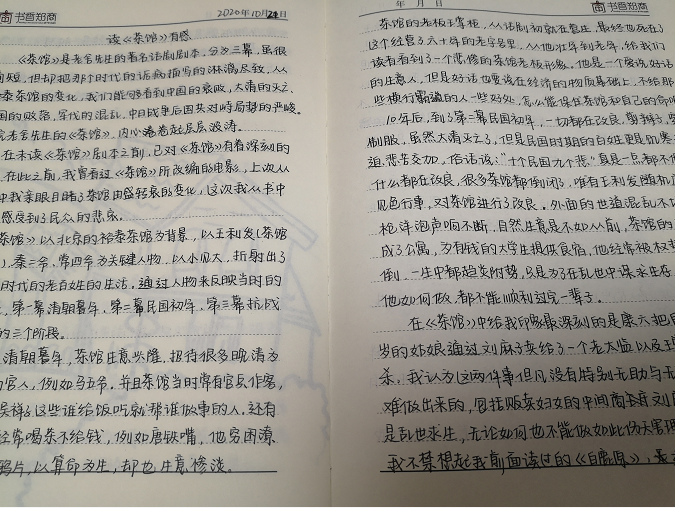 书香知商
2020年10月24日
读《茶馆》有感
《茶馆》是老舍先生的著名话剧剧本,分为三幕,虽很
短,但却把那个时代的诟病描写的淋漓尽致,从
泰茶馆的变化,我们能够看到中国的衰败,大清的灭亡、
国的败落、军伐的混乱、中日战争后国共对峙局势的严峻。
完老舍先生的《茶馆》,内心卷卷起层层波涛。
在未读《茶馆》剧本之前,已对《茶馆》有着深刻的
在此之前,我曾看过《茶馆》所改编的电影,上次从
中我亲眼目睹了茶馆由盛转衰的变化,这次我从书中
感受到了民众的悲哀。
茶馆》以北京的裕泰茶馆为背景,以王利发(茶馆
)、秦二爷、常四爷为关键人物,以小见大,折射出了
时代的老百姓的生活,通过人物来反映当时的
第一幕清朝暮年,第二幕民国初年,第三幕抗战
的三个阶段。
清朝暮年,茶馆生意兴隆,招待很多晚清为
官人,例如马五爷,并且茶馆当时常有官兵作客,
祥子这些谁给饭吃就帮谁做事的人,还有
经常喝茶不给钱,例如唐铁嘴,他穷困潦
鸦片,以算命为生,却也生意惨淡。
书香知商
年 月 日
茶馆的老板王掌柜,从话剧初就在登庄,最终也死在了
这个经营了六十年的老字号里,从他壮年到老年,给我们
读者看到了一个悲惨的茶馆老板形象,他是一个爱说好话
的生意人,但是好话也要说在经济的物质基础上,不给那
些横行霸道的人一些好处,怎么能保住茶馆和自己的命呢
10年后,到了第二幕民国初年,一切都在改良,剪辫子,穿
制服,虽然大清灭亡了,但是民国时期的百姓更是饥寒
迫、悲苦交加,俗话说:“十个民国九个悲”真是一点都不假
什么都在改良,很多茶馆都倒闭了,唯有王利发随机应
见色行事,对茶馆进行改良。外面的世道混乱不
枪炮声响不断,自然生意是不如从前,茶馆的
成了公寓,为有钱的大学生提供食宿,他经常被权
倒,一生中都趋炎附势,只是为了在乱世中谋求生存
他如何做,都不能顺利过完一辈子。
在《茶馆》中给我印象最深刻的是康六把自
岁的姑娘通过刘麻子卖给了一个老太监以及王
杀,我认为这两件事但凡没有特别无助与无
难做出来的,包括贩卖妇女的中间商刘
是乱世求生,无论如何也不能做如此伤天害理
我不禁想起我前面读过的《白鹿原》,